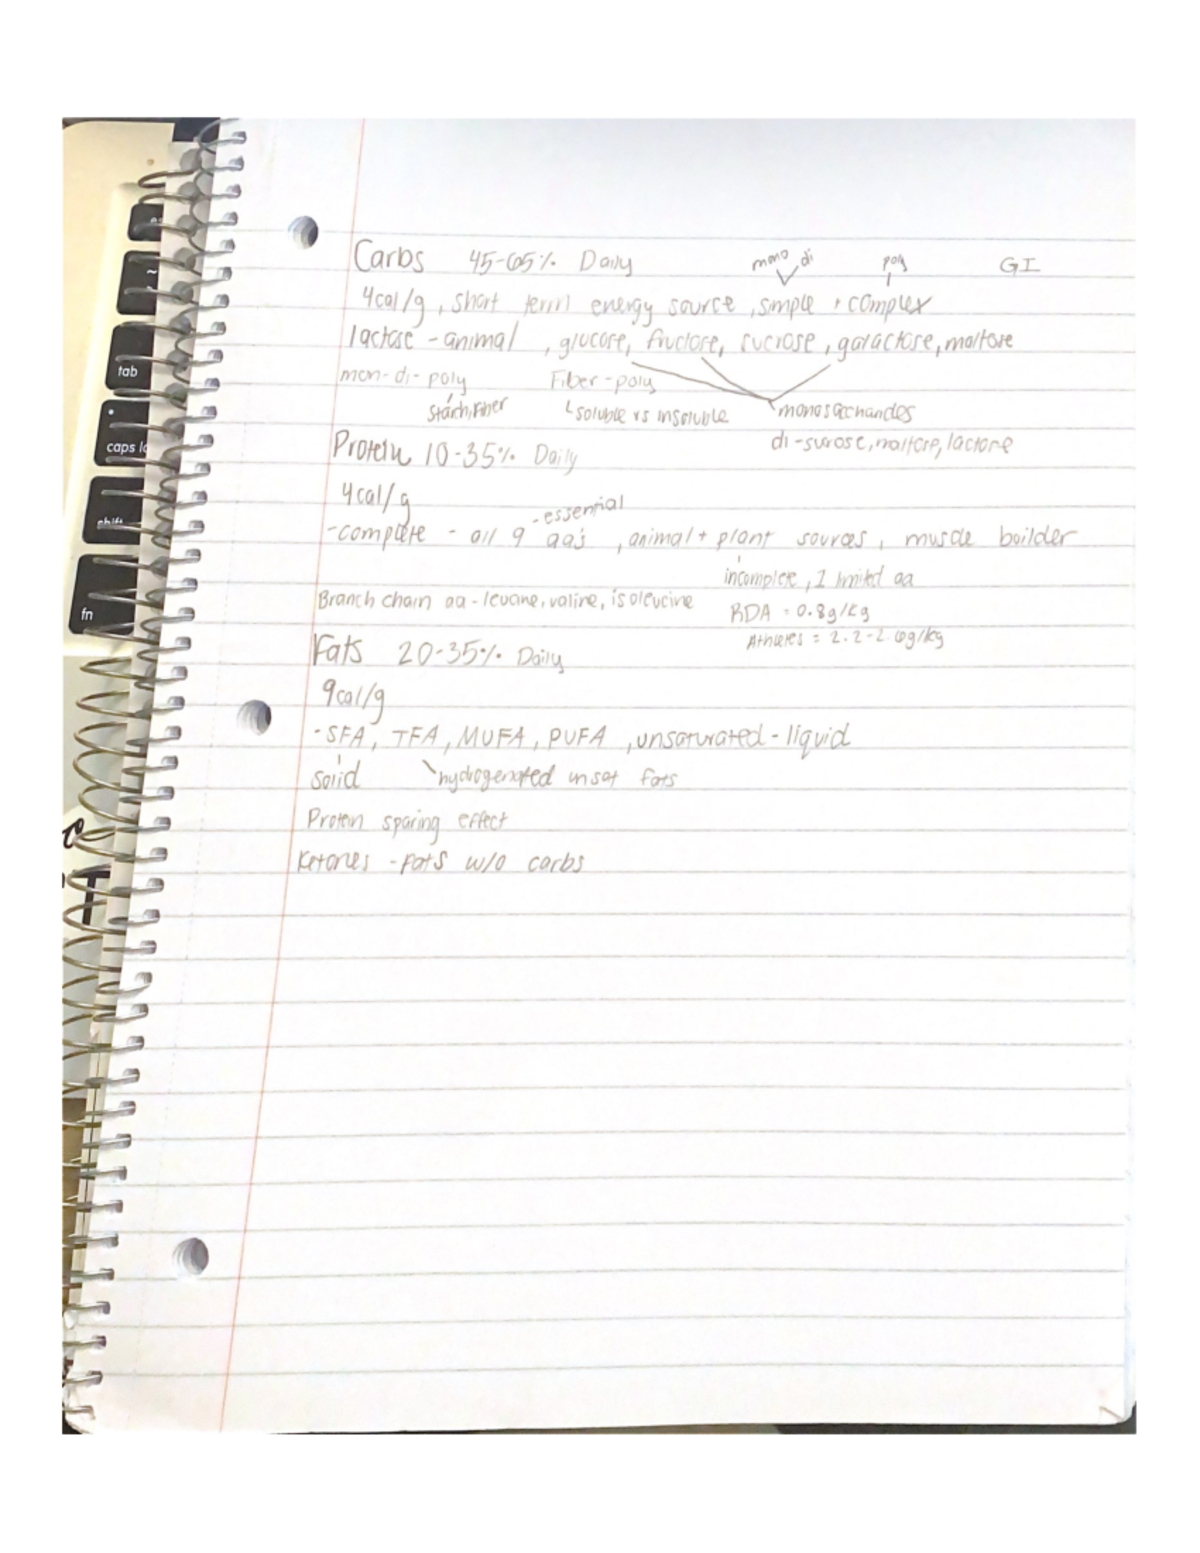 Carbs 45-65% Daily mono di poly GI
4cal/g, short term energy source, simple + complex
lactose - animal, glucose, fructose, sucrose, galactose, maltose
mon-di-poly Fiber-poly
Starch, Fiber soluble vs insoluble monosaccharides
di-surose, maltose, lactose
Protein 10-35% Daily
4cal/g
-essential
-complete - all 9 aas, animal + plant sources, muscle builder
incomplete, 1 limited aa
Branch chain aa - leucine, valine, isoleucine RDA = 0.8g/kg
Athletes = 2.2-2.6g/kg
Fats 20-35% Daily
9cal/g
-SFA, TFA, MUFA, PUFA, unsaturated-liquid
solid hydrogenated unsat fats
Protein sparing effect
Ketones - fats w/o carbs
tab
caps lo
shift
fn